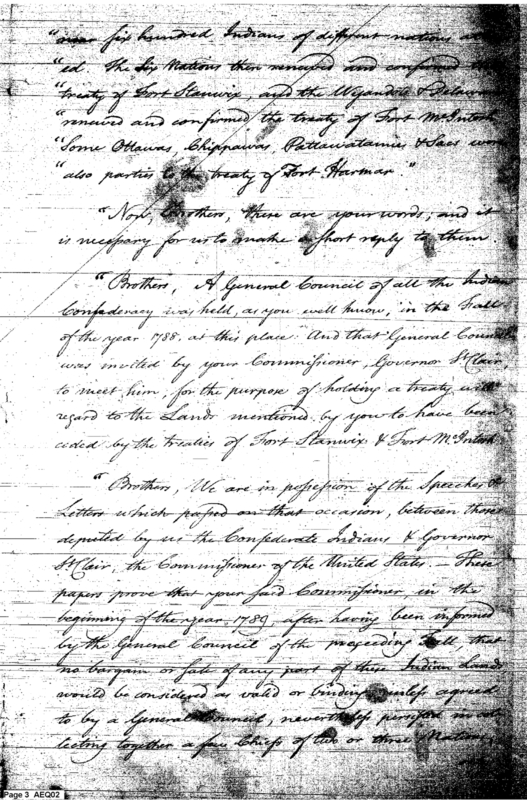 " six hundred Indians of different nations
"ed. The Six Nations then renewed and confirmed the
"treaty of Fort Stanwix, and the Wyandots & Delawares
"renewed and confirmed the treaty of Fort McIntosh.
"Some Ottawas, Chippawas, Pattawatamies & Sacs were
"also parties to the treaty of Fort Harmar."
"Now, Brothers, these are your words; and it
is necessary for us to make a short reply to them.
"Brothers, A General Council of all the Indian
Confederacy was held, as you well know, in the Fall
of the year 1788, at this place: And that General Council
was invited by your Commissioner, Governor St Clair,
to meet him, for the purpose of holding a treaty with
regard to the Lands mentioned by you to have been
ceded by the treaties of Fort Stanwix & Fort McIntosh.
"Brothers, We are in possession of the Speeches &
Letters which passed on that occasion, between those
deputed by us the Confederate Indians & Governor
St Clair, the Commissioner of the United States. — These
papers prove that your said Commissioner, in the
beginning of the year 1789, after having been informed
by the General Council of the preceeding Fall, that
no bargain or sale of any part of these Indian Lands
would be considered as valid or binding, unless agreed
to by a General Council, nevertheless persisted in col
lecting together a few Chiefs of two or three Nations,
Page 3 AEQ02